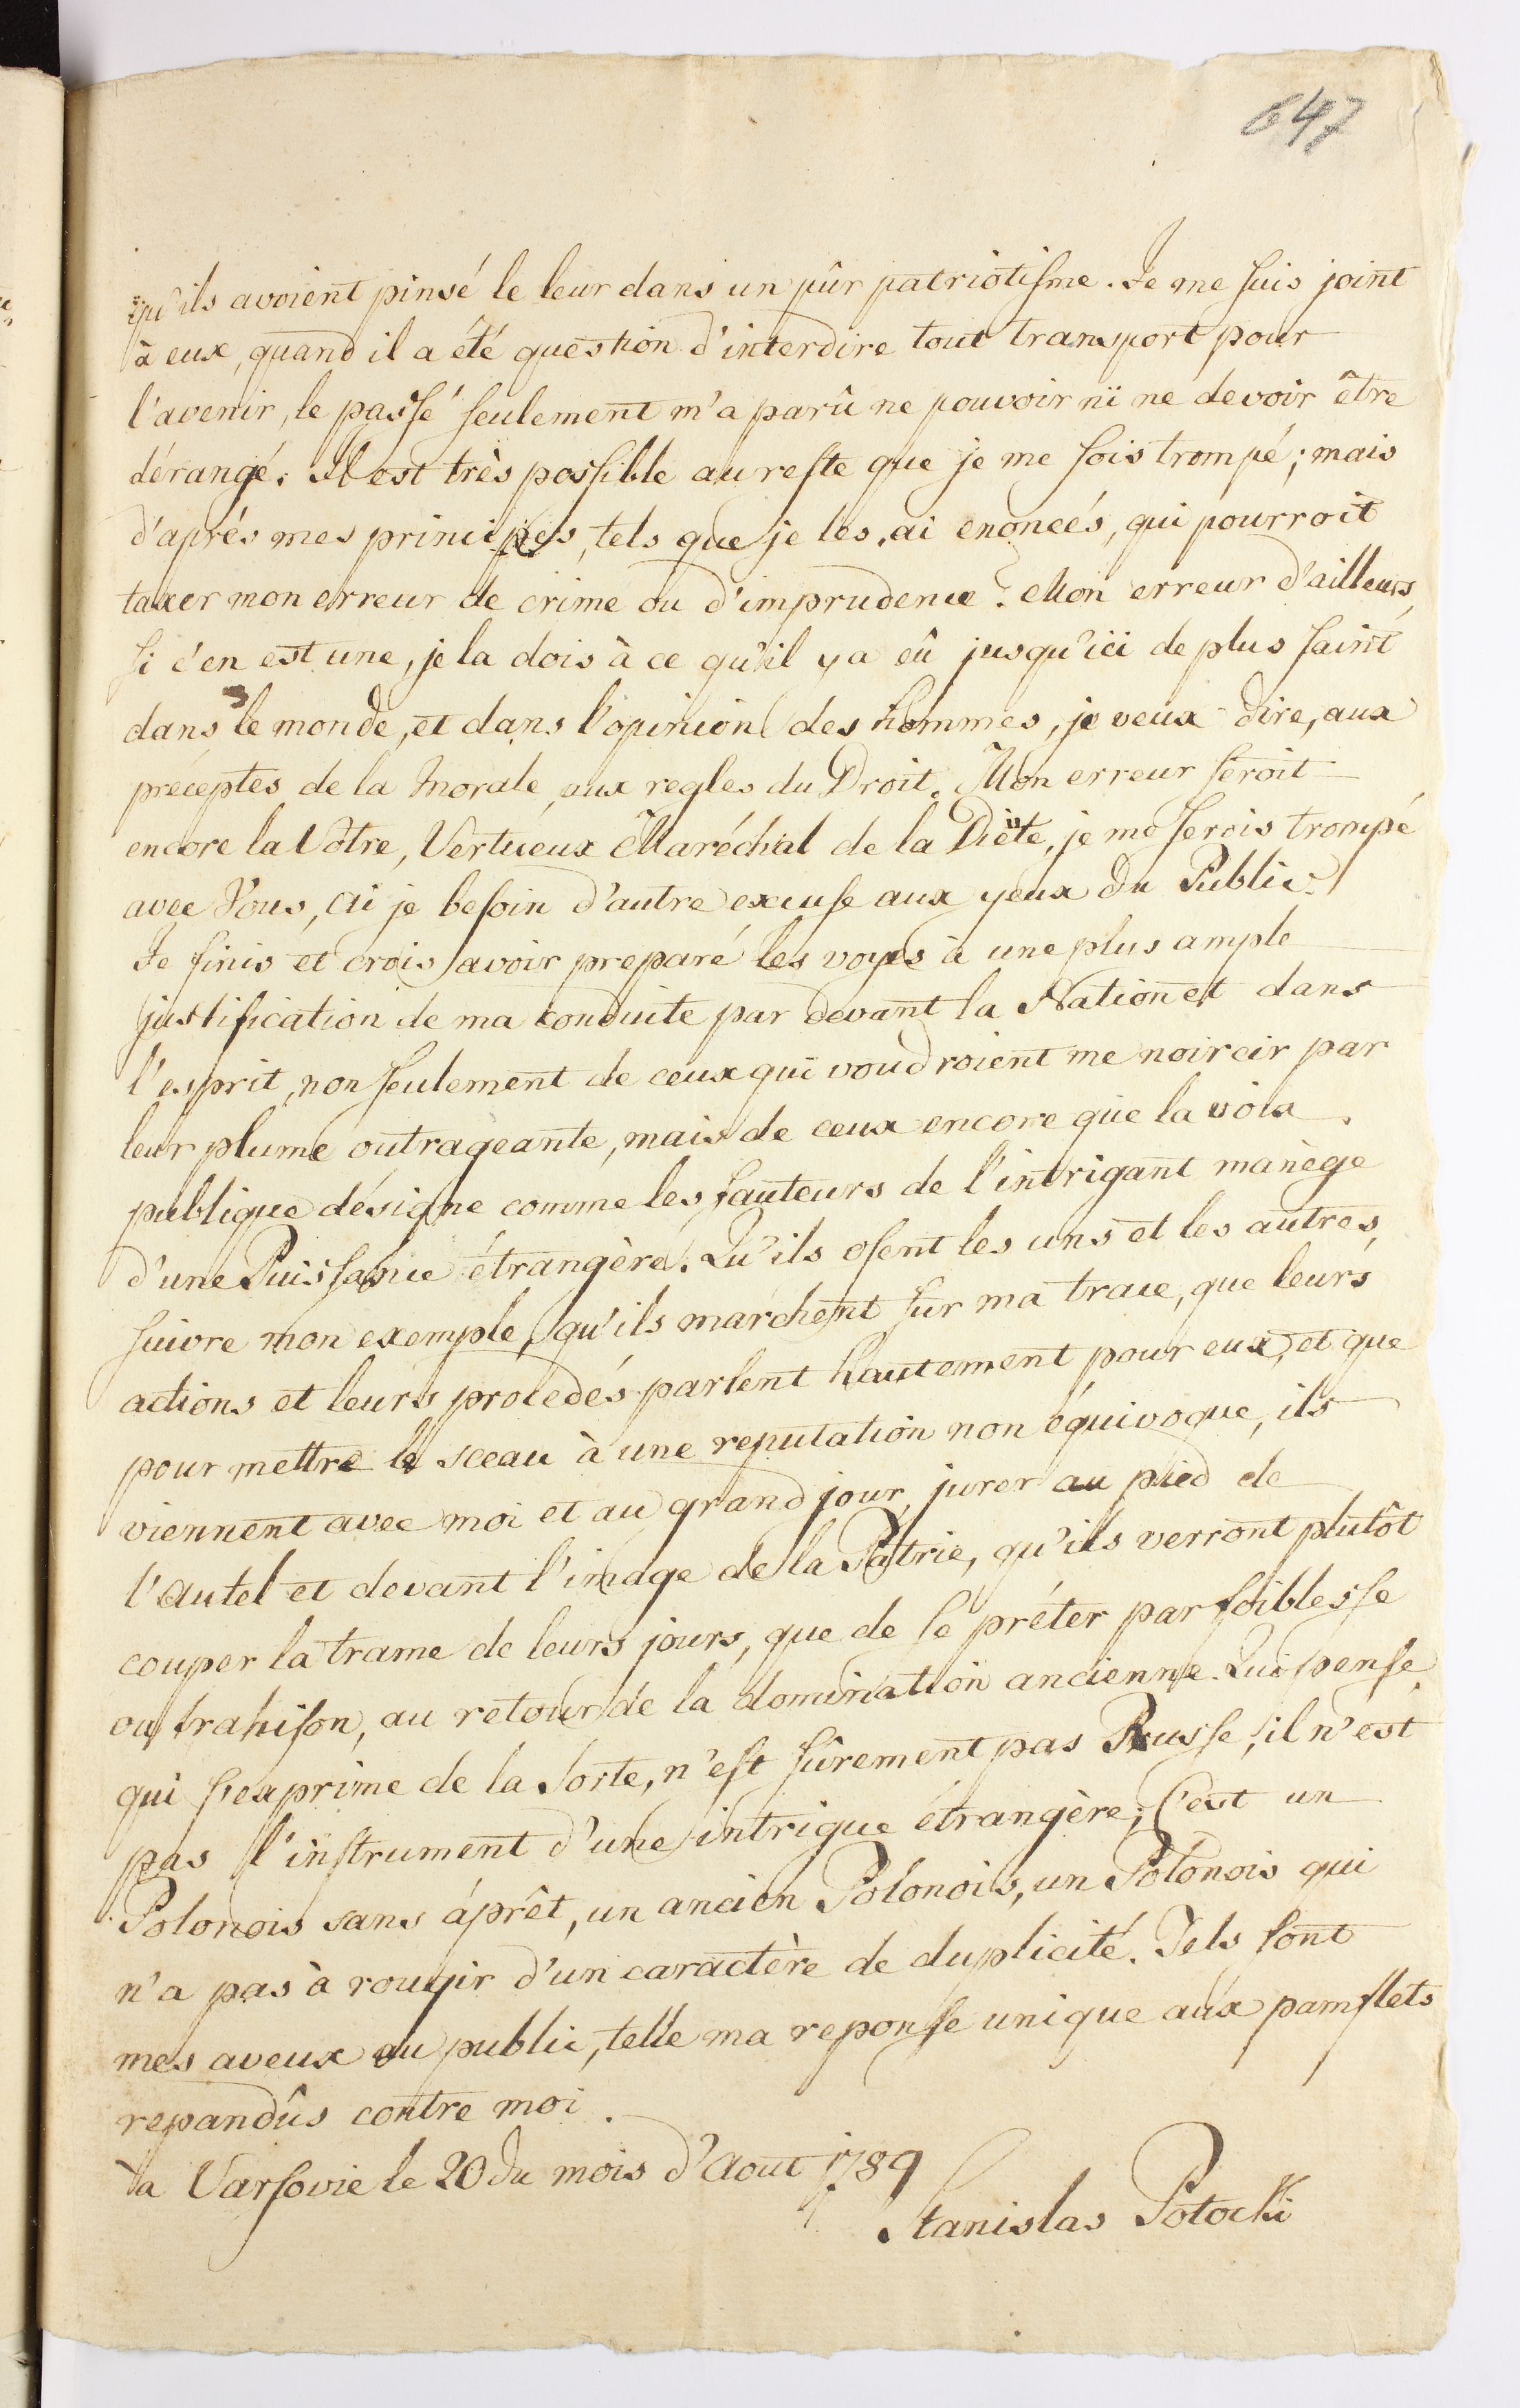 647
qu'ils avoient pinsé le leur dans un pûr patriotisme. Je me suis joint
à eux, quand il a été question d'interdire tout transport pour
l'avenir, le passé seulement m'a parû ne pouvoir ni ne devoir être
dérangé. Il est très possible au reste que je me sois trompé; mais
d'après mes principes, tels que je les ai enoncés, qui pourroit
taxer mon erreur de crime ou d'imprudence? Mon erreur d'ailleurs,
si c'en est une, je la dois à ce qu'il y a eû jusqu'ici de plus saint
dans le monde, et dans l'opinion des hommes, je veux dire, aux
préceptes de la Morale, aux regles du Droit. Mon erreur seroit
encore la Vôtre, Vertueux Maréchal de la Diète, je me serois trompé
avec Vous, ai je besoin d'autre excuse aux yeux du Public?
Je finis et crois avoir preparé les voyes à une plus ample
justification de ma conduite par devant la Nation et dans
l'esprit, non seulement de ceux qui voudroient me noircir par
leur plume outrageante, mais de ceux encore que la voix
publique désigne comme les fauteurs de l'intrigant manège
d'une Puissance étrangère. Qu'ils osent les uns et les autres,
suivre mon exemple, qu'ils marchent sur ma trace, que leurs
actions et leurs procedés parlent hautement pour eux, et que
pour mettre le sceau à une reputation non équivoque, ils
viennent avec moi et au grand jour, jurer au pied de
l'Autel et devant l'image de la Patrie, qu'ils verront plutôt
couper la trame de leurs jours, que de se préter par foiblesse
ou trahison, au retour de la domination ancienne. Qui pense,
qui s'exprime de la sorte, n'est sûrement pas Russe, il n'est
pas l'instrument d'une intrigue étrangère; C'est un
Polonois sans áprêt, un ancien Polonois, un Polonois qui
n'a pas à rougir d'un caractère de duplicité. Tels sont
mes aveux au public, telle ma reponse unique aux pamflets
repandûs contre moi.
à Varsovie le 20 du mois d'Aout 1789
Stanislas Potocki